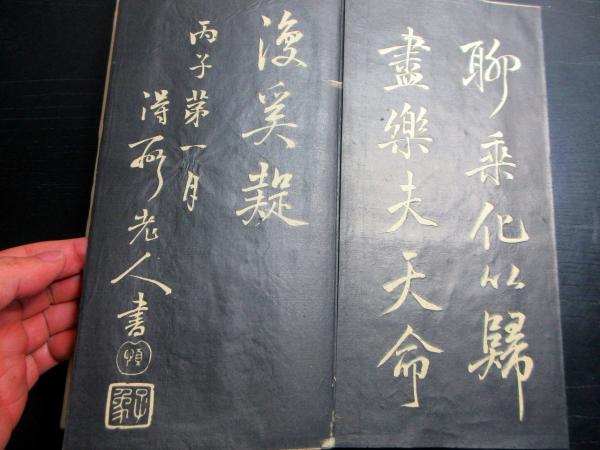 聊乘化以歸
盡樂夫天命
復奚疑
丙子第一月
得老人書